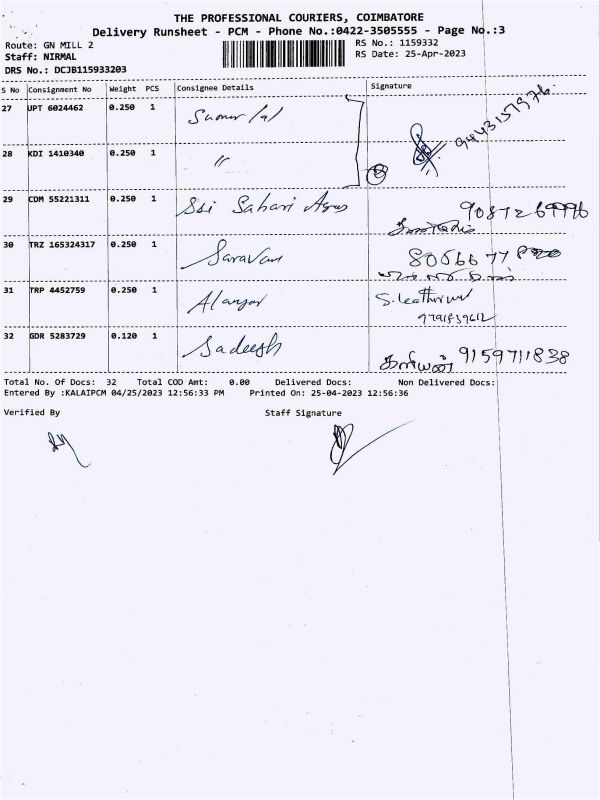 THE PROFESSIONAL COURIERS, COIMBATORE
Delivery Runsheet - PCM - Phone No.:0422-3505555 - Page No.:3
Route: GN MILL 2 RS No.: 1159332
Staff: NIRMAL RS Date: 25-Apr-2023
DRS No.: DCJB115933203
S No Consignment No Weight PCS Consignee Details Signature
27 UPT 6024462 0.250 1
28 KDI 1410340 0.250 1 "
29 CDM 55221311 0.250 1 Sri Sahari Agus
30 TRZ 165324317 0.250 1 Saravan
31 TRP 4452759 0.250 1
9791839612
32 GDR 5283729 0.120 1 Sadeesh 9159711838
Total No. Of Docs: 32 Total COD Amt: 0.00 Delivered Docs: Non Delivered Docs:
Entered By :KALAIPCM 04/25/2023 12:56:33 PM Printed On: 25-04-2023 12:56:36
Verified By Staff Signature